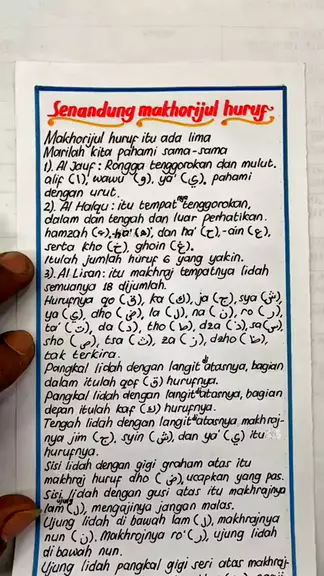 Senandung makhorijul huruf
Makhorijul huruf itu ada lima
Marilah kita pahami sama-sama
1). Al Jauf : Rongga tenggorokan dan mulut.
alif (ا), wawu (و), ya' (ي), pahami
dengan urut.
2). Al Halqu : itu tempatnya tenggorokan,
dalam dan tengah dan luar perhatikan.
hamzah (ء), ha' (ه), dan ha' (ح), -ain (ع),
serta kho (خ), ghoin (غ).
Itulah jumlah huruf 6 yang yakin.
3). Al Lisan : itu makhraj tempatnya lidah
semuanya 18 dijumlah.
Hurufnya qo (ق), ka (ك), ja (ج), sya (ش),
ya (ي), dho (ض), la (ل), na (ن), ro (ر),
ta' (ت), da (د), tho (ط), dza (ذ), sa (س),
sho (ص), tsa (ث), za (ز), dzho (ظ),
tak terkira.
Pangkal lidah dengan langit di atasnya, bagian
dalam itulah qof (ق) hurufnya.
Pangkal lidah dengan langit di atasnya, bagian
depan itulah kaf (ك) hurufnya.
Tengah lidah dengan langit di atasnya makhraj-
nya jim (ج), syin (ش), dan ya' (ي) itu
hurufnya.
Sisi lidah dengan gigi graham atas itu
makhraj huruf dho (ض), ucapkan yang pas.
Sisi ujung lidah dengan gusi atas itu makhrajnya
lam (ل), mengajinya jangan malas.
Ujung lidah di bawah lam (ل), makhrajnya
nun (ن). Makhrojnya ro' (ر), ujung lidah
di bawah nun.
Ujung lidah pangkal gigi seri atas makhraj-